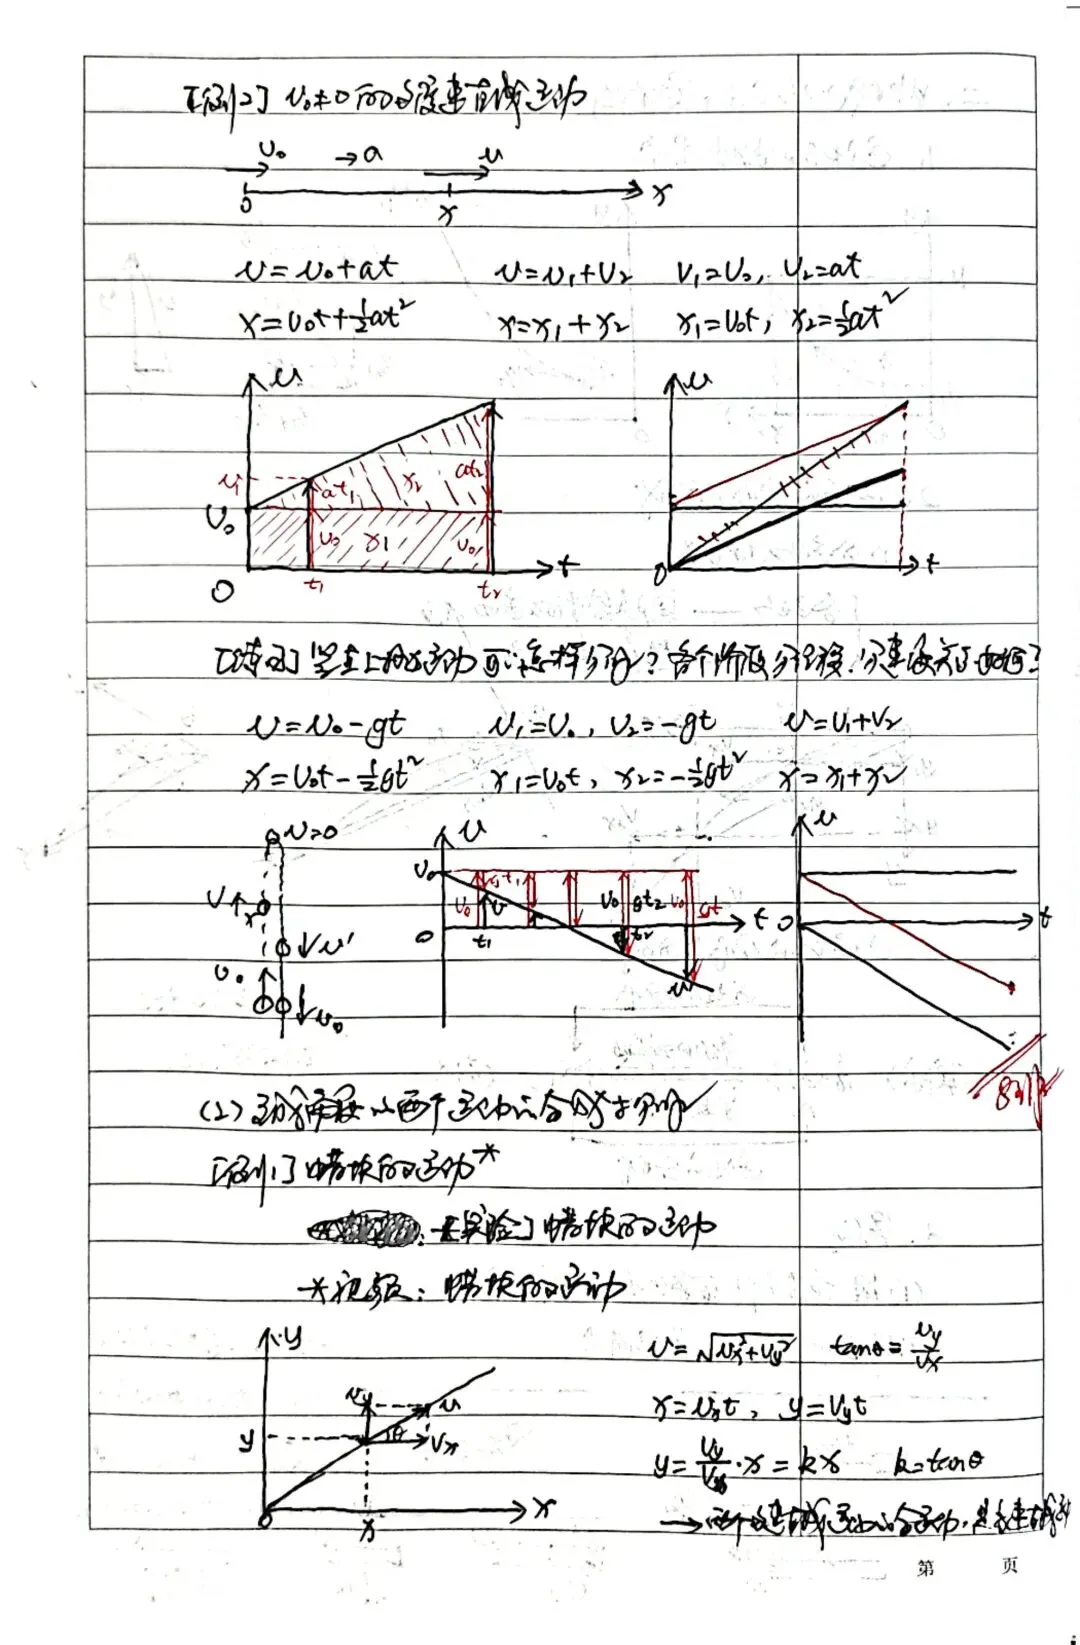 [例2] v₀≠0的匀变速直线运动
v₀ →a v
0 x x
v=v₀+at v=v₁+v₂ v₁=v₀, v₂=at
x=v₀t+½at² x=x₁+x₂ x₁=v₀t, x₂=½at²
v v
v₁ at₁ x₂ at₂
v₀ v₀ x₁ v₀
O t₁ t₂ t O t
[练习] 竖直上抛运动可怎样分解?各个阶段分位移、分速度关系如何?
v=v₀-gt v₁=v₀, v₂=-gt v=v₁+v₂
x=v₀t-½gt² x₁=v₀t, x₂=-½gt² x=x₁+x₂
v=0 v v
v₀ gt₁
v x v₀ v v₀ gt₂ v₀ gt
v' 0 t₁ t₂ t 0 t
v₀ v₀ v
(2) 互成角度的两个运动的合成与分解
[例1] 蜡块的运动*
[实验] 蜡块的运动
*视频: 蜡块的运动
y v=√(vx²+vy²) tanθ=vy/vx
vy v x=vxt, y=vyt
y θ vx y=vy/vx·x=kx k=tanθ
0 x x →两个匀速直线运动的合运动,是匀速直线
第 页